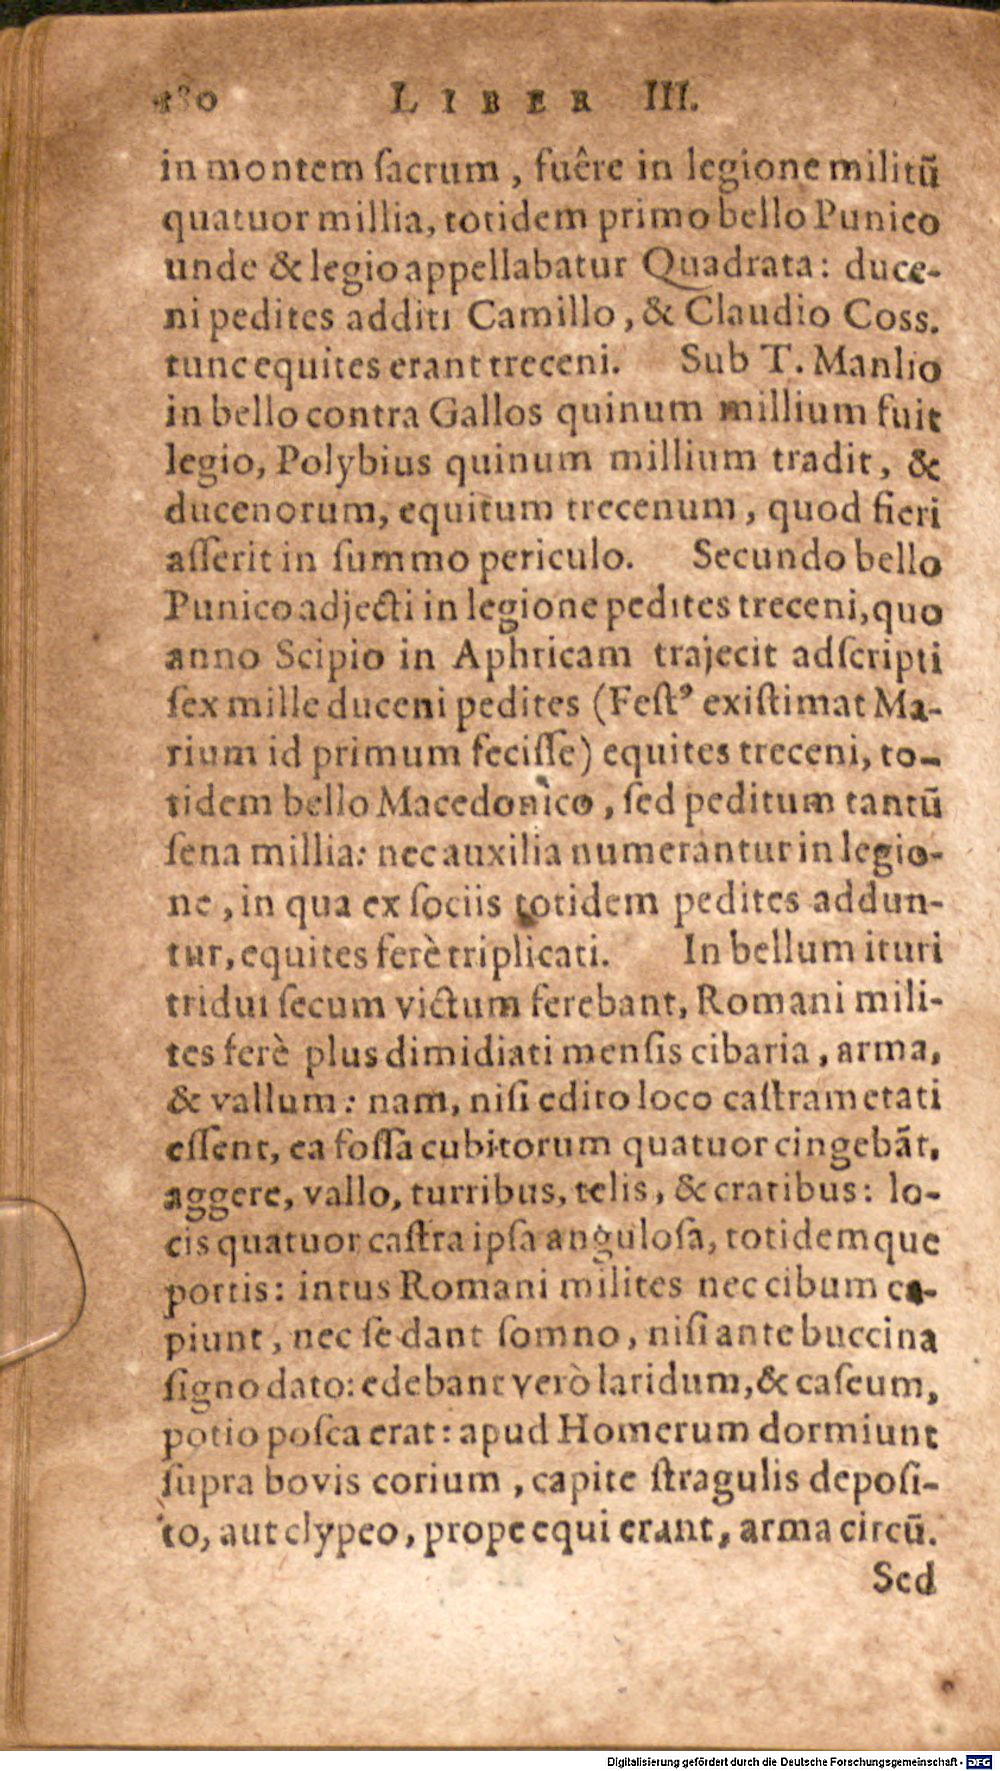 180 LIBER III.
in montem ſacrum, fuêre in legione militũ
quatuor millia, totidem primo bello Punico
unde & legio appellabatur Quadrata: duce-
ni pedites additi Camillo, & Claudio Coss.
tunc equites erant treceni. Sub T. Manlio
in bello contra Gallos quinum millium fuit
legio, Polybius quinum millium tradit, &
ducenorum, equitum trecenum, quod fieri
aſſerit in ſummo periculo. Secundo bello
Punico adjecti in legione pedites treceni, quo
anno Scipio in Aphricam trajecit adſcripti
ſex mille duceni pedites (Feſtꝰ exiſtimat Ma-
rium id primum feciſſe) equites treceni, to-
tidem bello Macedonico, ſed peditum tantũ
ſena millia: nec auxilia numerantur in legio-
ne, in qua ex ſociis totidem pedites addun-
tur, equites ferè triplicati. In bellum ituri
tridui ſecum victum ferebant, Romani mili-
tes ferè plus dimidiati menſis cibaria, arma,
& vallum: nam, niſi edito loco caſtrametati
eſſent, ea foſſa cubitorum quatuor cingebãt,
aggere, vallo, turribus, telis, & cratibus: lo-
cis quatuor caſtra ipſa anguloſa, totidemque
portis: intus Romani milites nec cibum ca-
piunt, nec ſe dant ſomno, niſi ante buccina
ſigno dato: edebant verò laridum, & caſeum,
potio poſca erat: apud Homerum dormiunt
ſupra bovis corium, capite ſtragulis depoſi-
to, aut clypeo, prope equi erant, arma circũ.
Sed
Digitalisierung gefördert durch die Deutsche Forschungsgemeinschaft - DFG